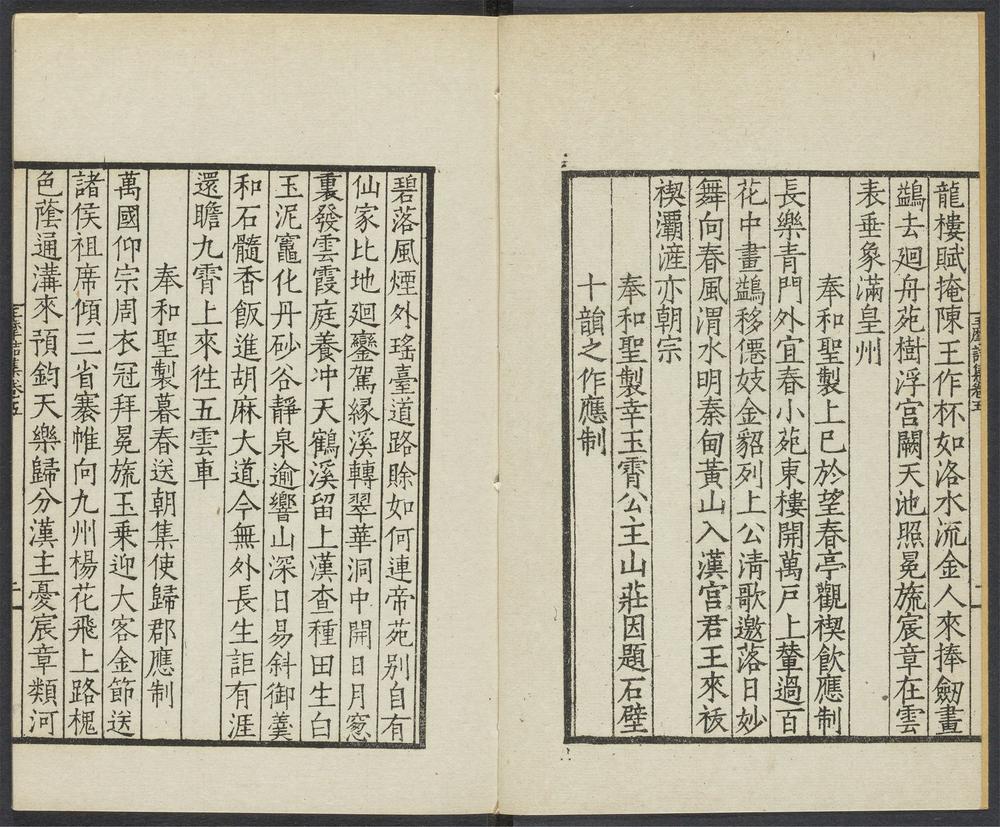 龍樓賦掩陳王作杯如洛水流金人來捧劒畫
鷁去迴舟苑樹浮宮闕天池照冕旒宸章在雲
表垂象滿皇州
奉和聖製上巳於望春亭觀禊飲應制
長樂青門外宜春小苑東樓開萬戶上輦過百
花中畫鷁移僊妓金貂列上公清歌邀落日妙
舞向春風渭水明秦甸黃山入漢宮君王來祓
禊灞滻亦朝宗
奉和聖製幸玉霄公主山莊因題石壁
十韻之作應制
碧落風煙外瑤臺道路賖如何連帝苑別自有
仙家比地廻鑾駕緣溪轉翠華洞中開日月窓
裏發雲霞庭養冲天鶴溪留上漢查種田生白
玉泥竈化丹砂谷靜泉逾響山深日易斜御羹
和石髓香飯進胡麻大道今無外長生詎有涯
還瞻九霄上來徃五雲車
奉和聖製暮春送朝集使歸郡應制
萬國仰宗周衣冠拜冕旒玉乘迎大客金節送
諸侯祖席傾三省褰帷向九州楊花飛上路槐
色蔭通溝來預鈞天樂歸分漢主憂宸章類河